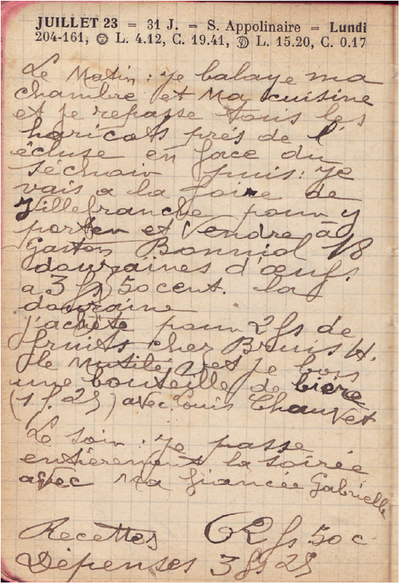 JUILLET 23 = 31 J. = S. Appolinaire = Lundi
204-161, L. 4.12, C. 19.41, L. 15.20, C. 0.17
Le Matin : je balaye ma
chambre et ma cuisine
et je repasse tous les
haricots prés de l'
écluse en face du
Séchoir puis : je
vais a la foire de
Villefranche pour y
porter et vendre à
Gaston Bonniol 18
douzaines d'œufs
a 3 fs 50 cent. la
douzaine
j'achète pour 2 fs de
fruits chez Bruis H.
le et je bois
une bouteille de bière
(1 f. 25) avec Louis Chauvet
Le Soir : je passe
entièrement la soirée
avec ma fiancée Gabrielle
Recettes 62 fs 50 c
Dépenses 3 fs 25